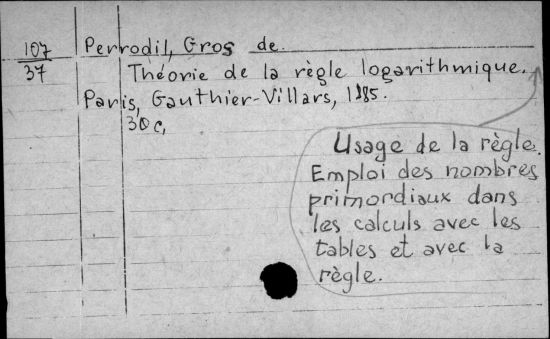 107
37
Perrodil, Gros de.
Théorie de la règle logarithmique.
Paris, Gauthier-Villars, 1885.
30 c,
Usage de la règle.
Emploi des nombres
primordiaux dans
les calculs avec les
tables et avec la
règle.